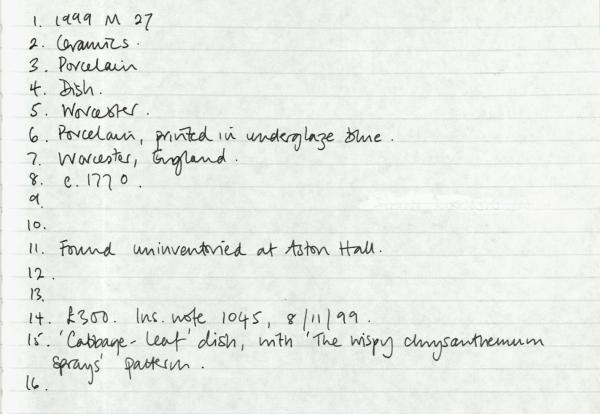 1. 1999 M 27
2. Ceramics.
3. Porcelain
4. Dish.
5. Worcester.
6. Porcelain, printed in underglaze blue.
7. Worcester, England.
8. c. 1770.
9.
10.
11. Found uninventoried at Aston Hall.
12.
13.
14. £300. Ins. note 1045, 8/11/99.
15. 'Cabbage-leaf' dish, with 'The wispy chrysanthemum
sprays' pattern.
16.